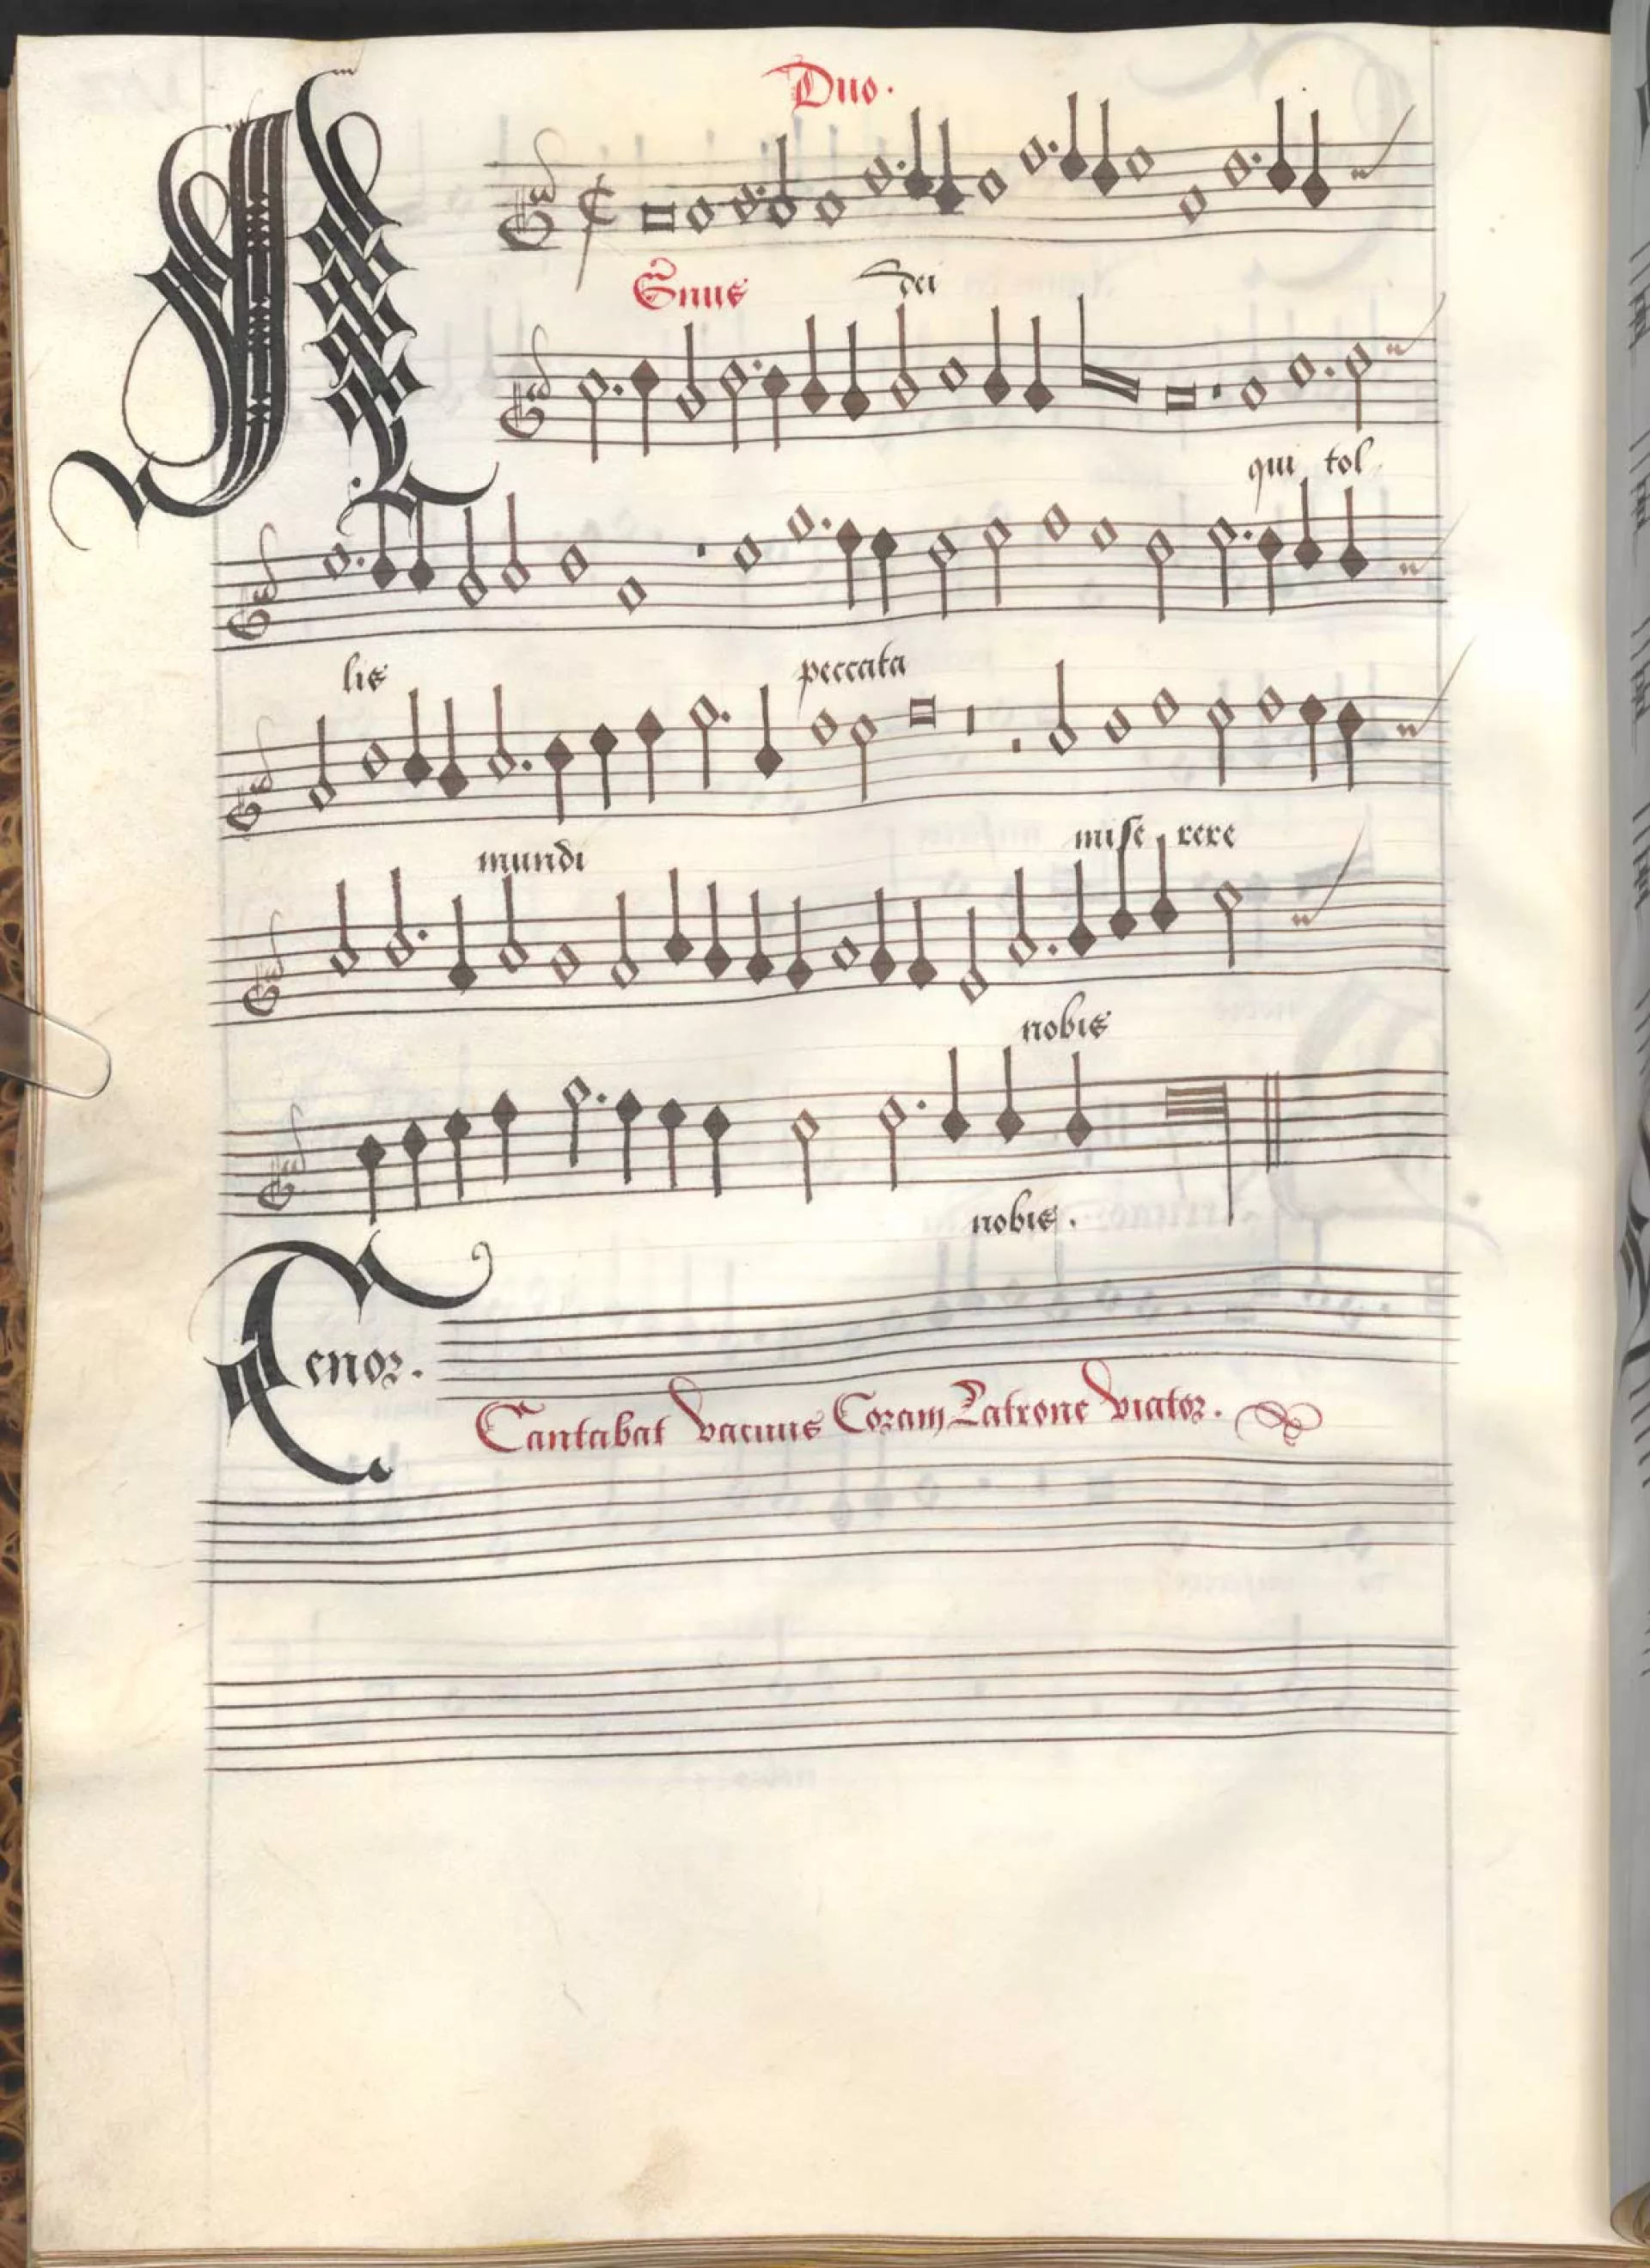 Duo.
A Gnus dei
qui tol
lis peccata
mundi mise rere
nobis
nobis.
Tenor.
Cantabat vacuus Coram Latrone viator.